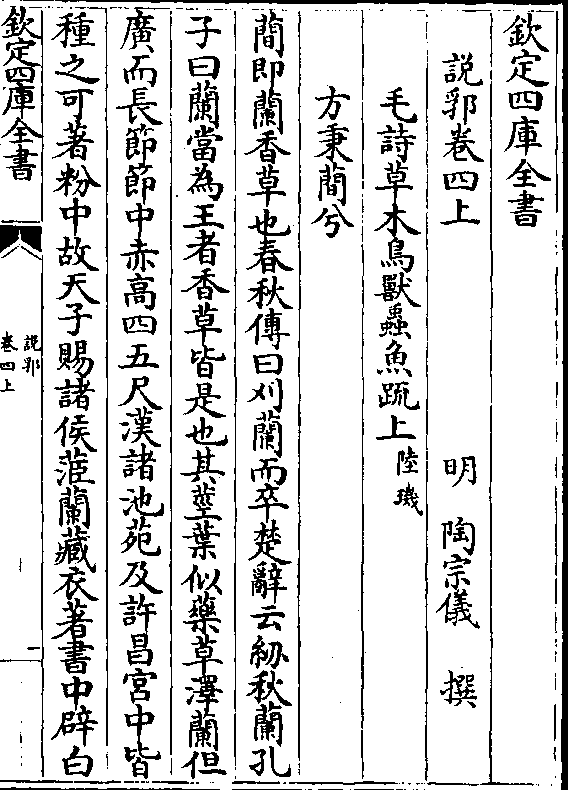 欽定四庫全書
說郛卷四上 明 陶宗儀 撰
毛詩草木鳥獸蟲魚䟽上 陸璣
方秉蕑兮
蕑即蘭香草也春秋傳曰刈蘭而卒楚辭云紉秋蘭孔
子曰蘭當為王者香草皆是也其莖葉似藥草澤蘭但
廣而長節節中赤高四五尺漢諸池苑及許昌宮中皆
種之可著粉中故天子賜諸侯茝蘭藏衣著書中辟白
欽定四庫全書
說郛
卷四上
一